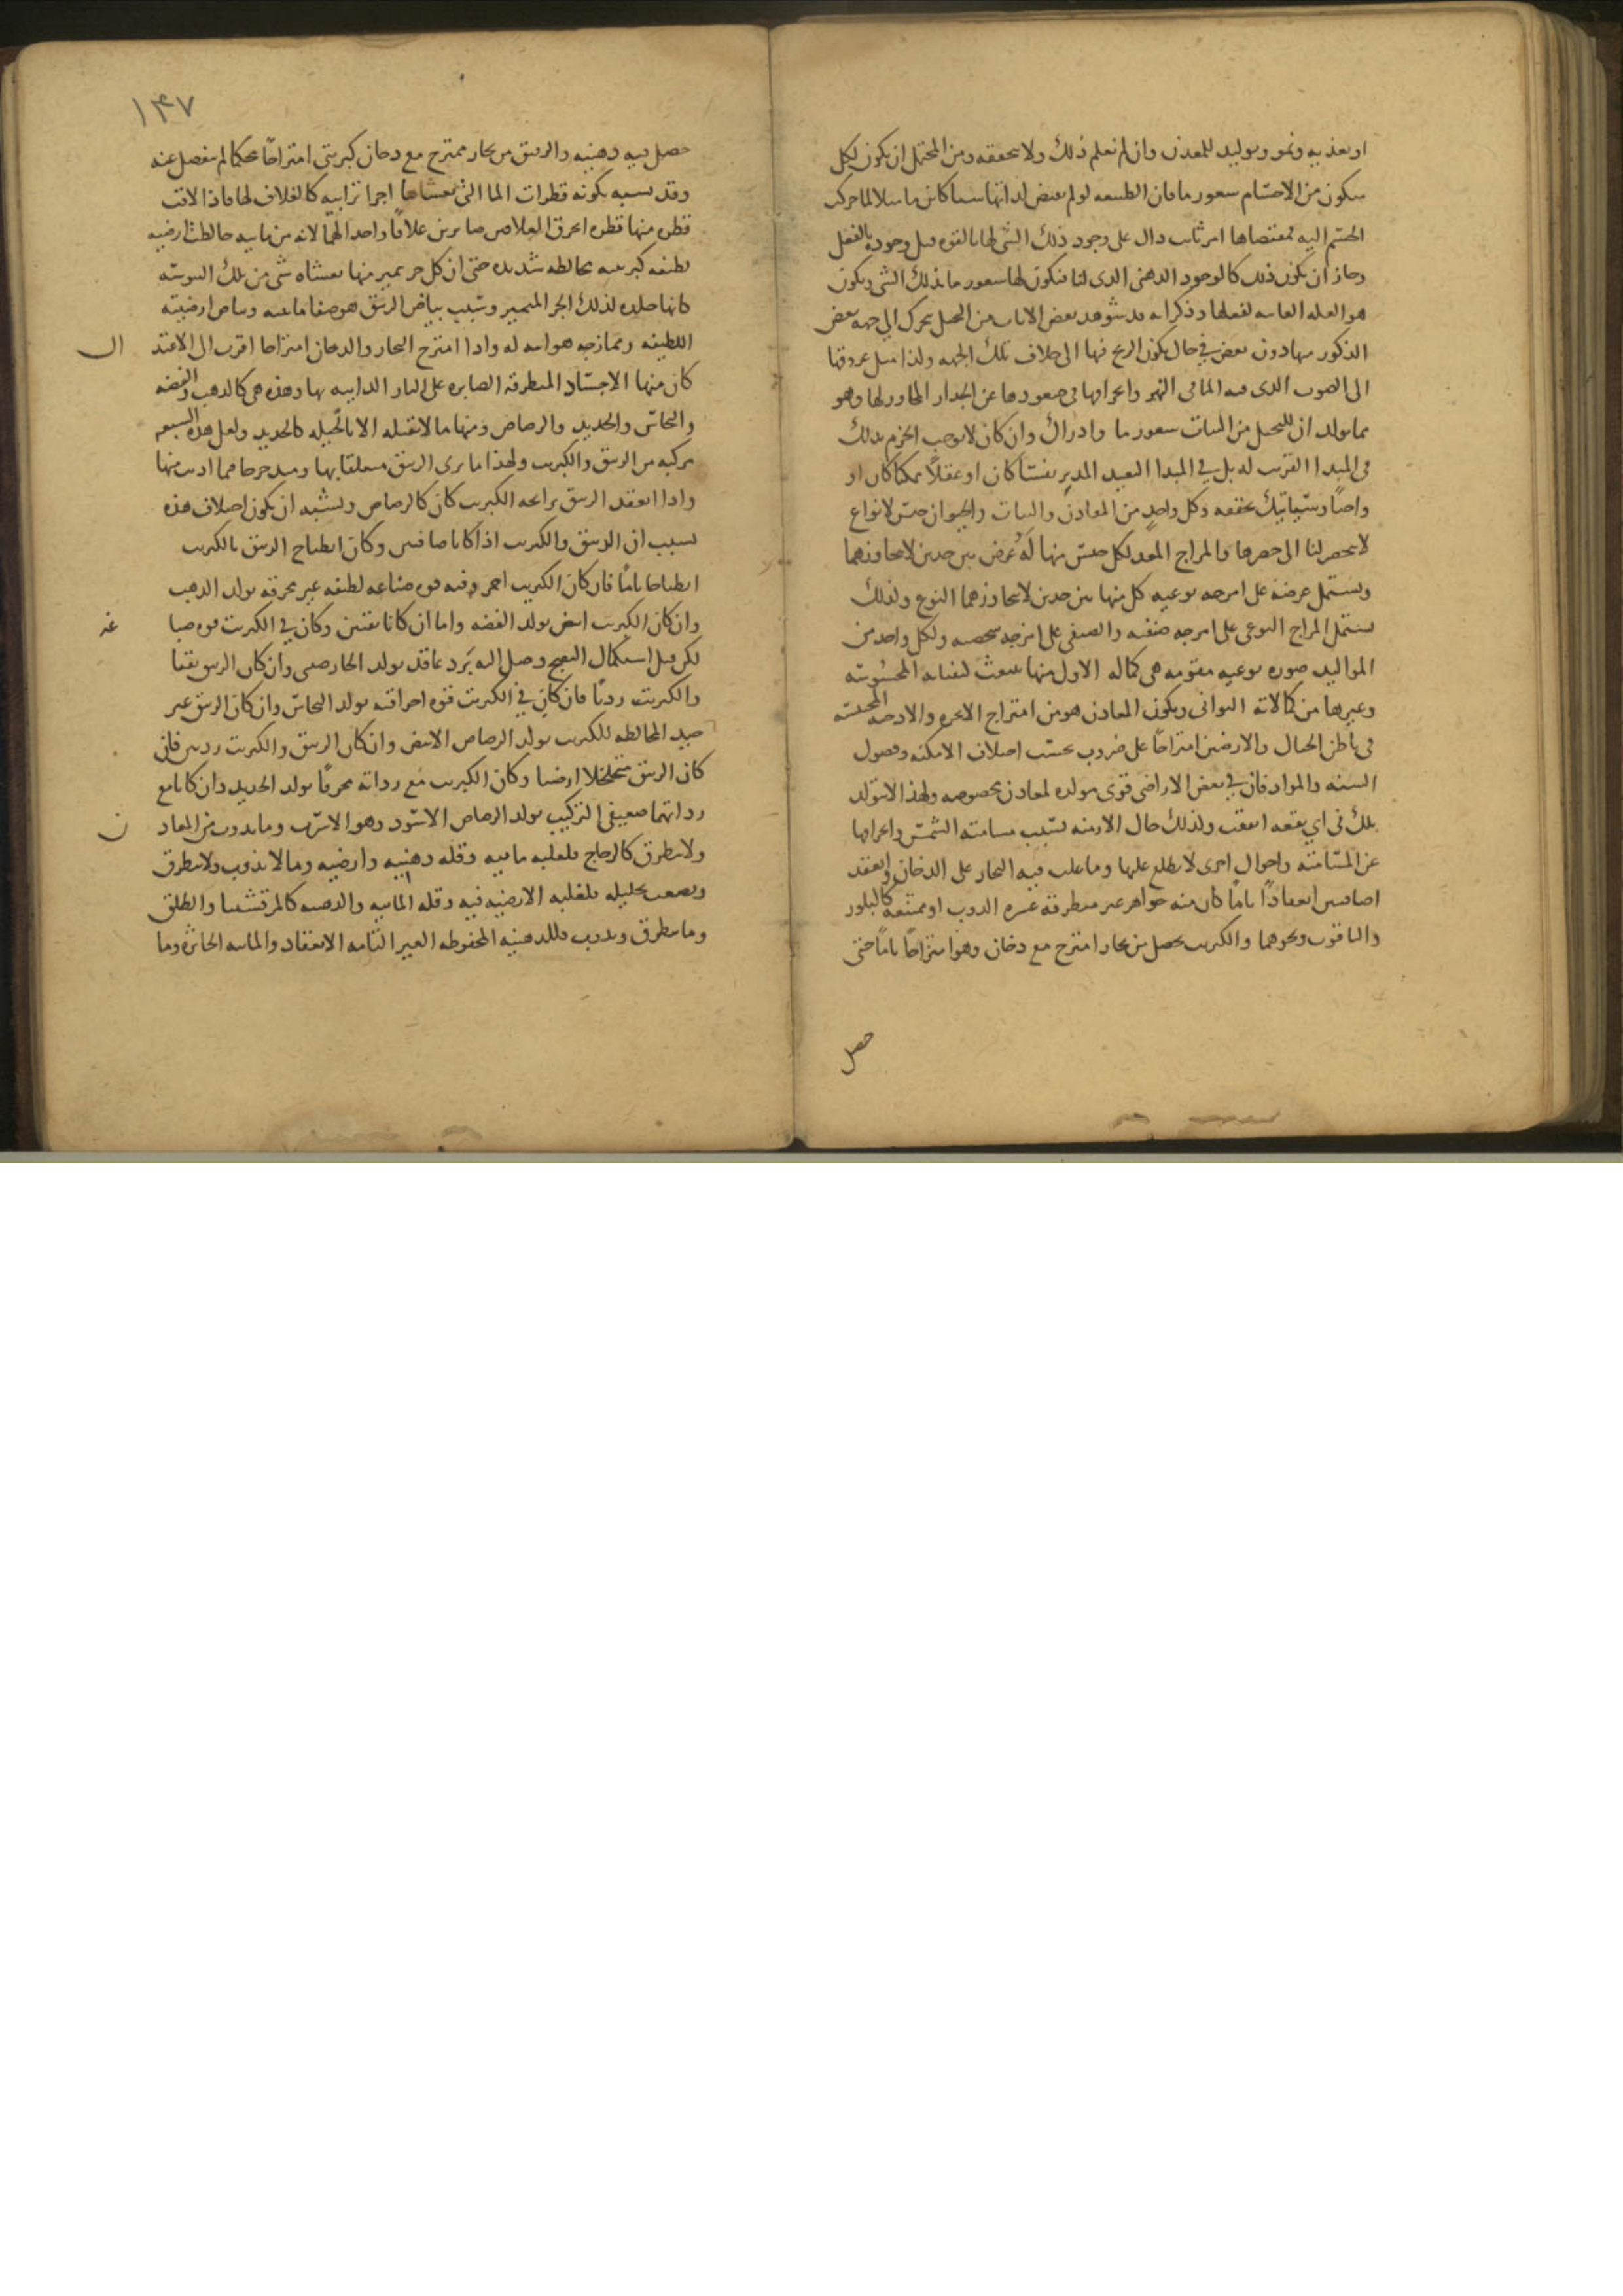 او تغذيه ونمو وتوليد للمعدن وان لم نعلم ذلك ولا نتحققه ومن المحتمل ان يكون لكل
متكون من الاجسام شعور ما فان الطبيعه لو لم يقتض لذاتها شيا كاين ما ميلا لما حركت
الجسم اليه فمقتضاها امر ثابت دال على وجود ذلك الشي لها بالقوه قبل وجوده بالفعل
وجاز ان يكون ذلك كالوجود الذهني الذي لنا فيكون لها شعور ما بذلك الشي ويكون
هو العله الغاييه لفعلها وذكر انه قد شوهد بعض الاناث من النخل يتحرك الي جهه بعض
الذكور منها دون بعض في حال يكون الريح فيها الى خلاف تلك الجهه ولذا ميل عروقها
الى الصوب الذي فيه الما في النهر وانحرافها في صعودها عن الجدار المجاور لها وهو
مما يولد ان للنخل من النبات شعور ما وادراك وان كان لا يوجب الجزم بذلك
في المبدا القريب له بل في المبدا البعيد المدبر نفسا كان او عقلا ممكنا كان او
واجبا وسياتيك تحققه وكل واحد من المعادن والنبات والحيوان جنس لانواع
لا تحصر لنا الى حصرها والمزاج المعد لكل جنس منها له عرض بين حدين لا يتجاوزهما
ويشتمل عرضه على امزجه نوعيه كل منها بين حدين لا يتجاوزهما النوع ولذلك
يشتمل المزاج النوعي على امزجه صنفيه والصنفي على امزجه شخصيه ولكل واحد من
المواليد صوره نوعيه مقومه هي كماله الاول منها تنبعث كيفياته المحسوسه
وغيرها من كمالاته الثواني ويكون المعادن هو من امتزاج الابخره والادخنه المحتبسه
في باطن الجبال والارضين امتزاجا على ضروب بحسب اختلاف الامكنه وفصول
السنه والمواد فان في بعض الاراضي قوى مولده لمعادن مخصوصه ولهذا لا يتولد
تلك في اي بقعه اتفقت ولذلك حال الازمنه بسبب مسامته الشمس وانحرافها
عن المسامته واحوال اخرى لا يطلع عليها وما غلب فيه البخار على الدخان وانعقد
صافيين انعقادا تاما كان منه جواهر غير متطرقه عسره الذوب او ممتنعه كالبلور
والياقوت ونحوهما والكبريت يحصل من بخار امتزج مع دخان وهوا امتزاجا تاما حتى
حصل
١٣٧
حصل فيه دهنيه والزيبق من بخار ممتزج مع دخان كبريتي امتزاجا محكما لم ينفصل عنه
وقد يشبه تكونه قطرات الما التي تغشاها اجزا ترابيه كالغلاف لها فاذا لاقت
قطره منها قطره انخرق الغلافين صايرين غلافا واحدا لهما لانه من مائيه خالطت ارضيه
لطيفه كبريتيه مخالطه شديده حتى ان كل جز يتميز منها يغشاه شي من تلك اليبوسه
كانها جلده لذلك الجز المتميز وسبب بياض الزيبق هو صفا مائيته وبياض ارضيته
اللطيفه وممازجه هوائيه له واذا امتزج البخار والدخان امتزاجا اقرب الى الاعتد
ال
كان منها الاجساد المتطرقه الصابره على النار الذايبه بها وهذه هي كالذهب والفضه
والنحاس والحديد والرصاص ومنها ما لا تقبله الا بالحيله كالحديد ولعل هذه السبعه
مركبه من الزيبق والكبريت ولهذا ما يرى الزيبق متعلقا بها ومتدحرجا فيما اذيب منها
واذا انعقد الزيبق برايحه الكبريت كان كالرصاص ويشبه ان يكون اختلاف هذه
بسبب ان الزيبق والكبريت اذا كانا صافيين وكان انطباخ الزيبق بالكبريت
انطباخا تاما فان كان الكبريت احمر وفيه قوه صباغه لطيفه غير محرقه تولد الذهب
وان كان الكبريت ابيض تولد الفضه واما ان كانا نقيين وكان في الكبريت قوه صبا
غه
لكن قبل استكمال النضج وصل اليه برد عاقد تولد الخارصيني وان كان الزيبق نقيا
والكبريت رديا فان كان في الكبريت قوه احراقيه تولد النحاس وان كان الزيبق غير
جيد المخالطه للكبريت تولد الرصاص الابيض وان كان الزيبق والكبريت رديين فان
كان الزيبق متخلخلا ارضيا وكان الكبريت مع رداته محرقا تولد الحديد وان كانا مع
رداتهما ضعيفي التركيب تولد الرصاص الاسود وهو الاسرب وما يذوب من المعاد
ن
ولا يتطرق كالزجاج فلغلبه مائيه وقله دهنيه وارضيه وما لا يذوب ولا يتطرق
ويصعب تحليله فلغلبه الارضيه فيه وقله المائيه والدهنيه كالمرقشيثا والطلق
وما يتطرق ويذوب فللدهنيه المحفوظه الغير التامه الانعقاد والمائيه الخاثره وما